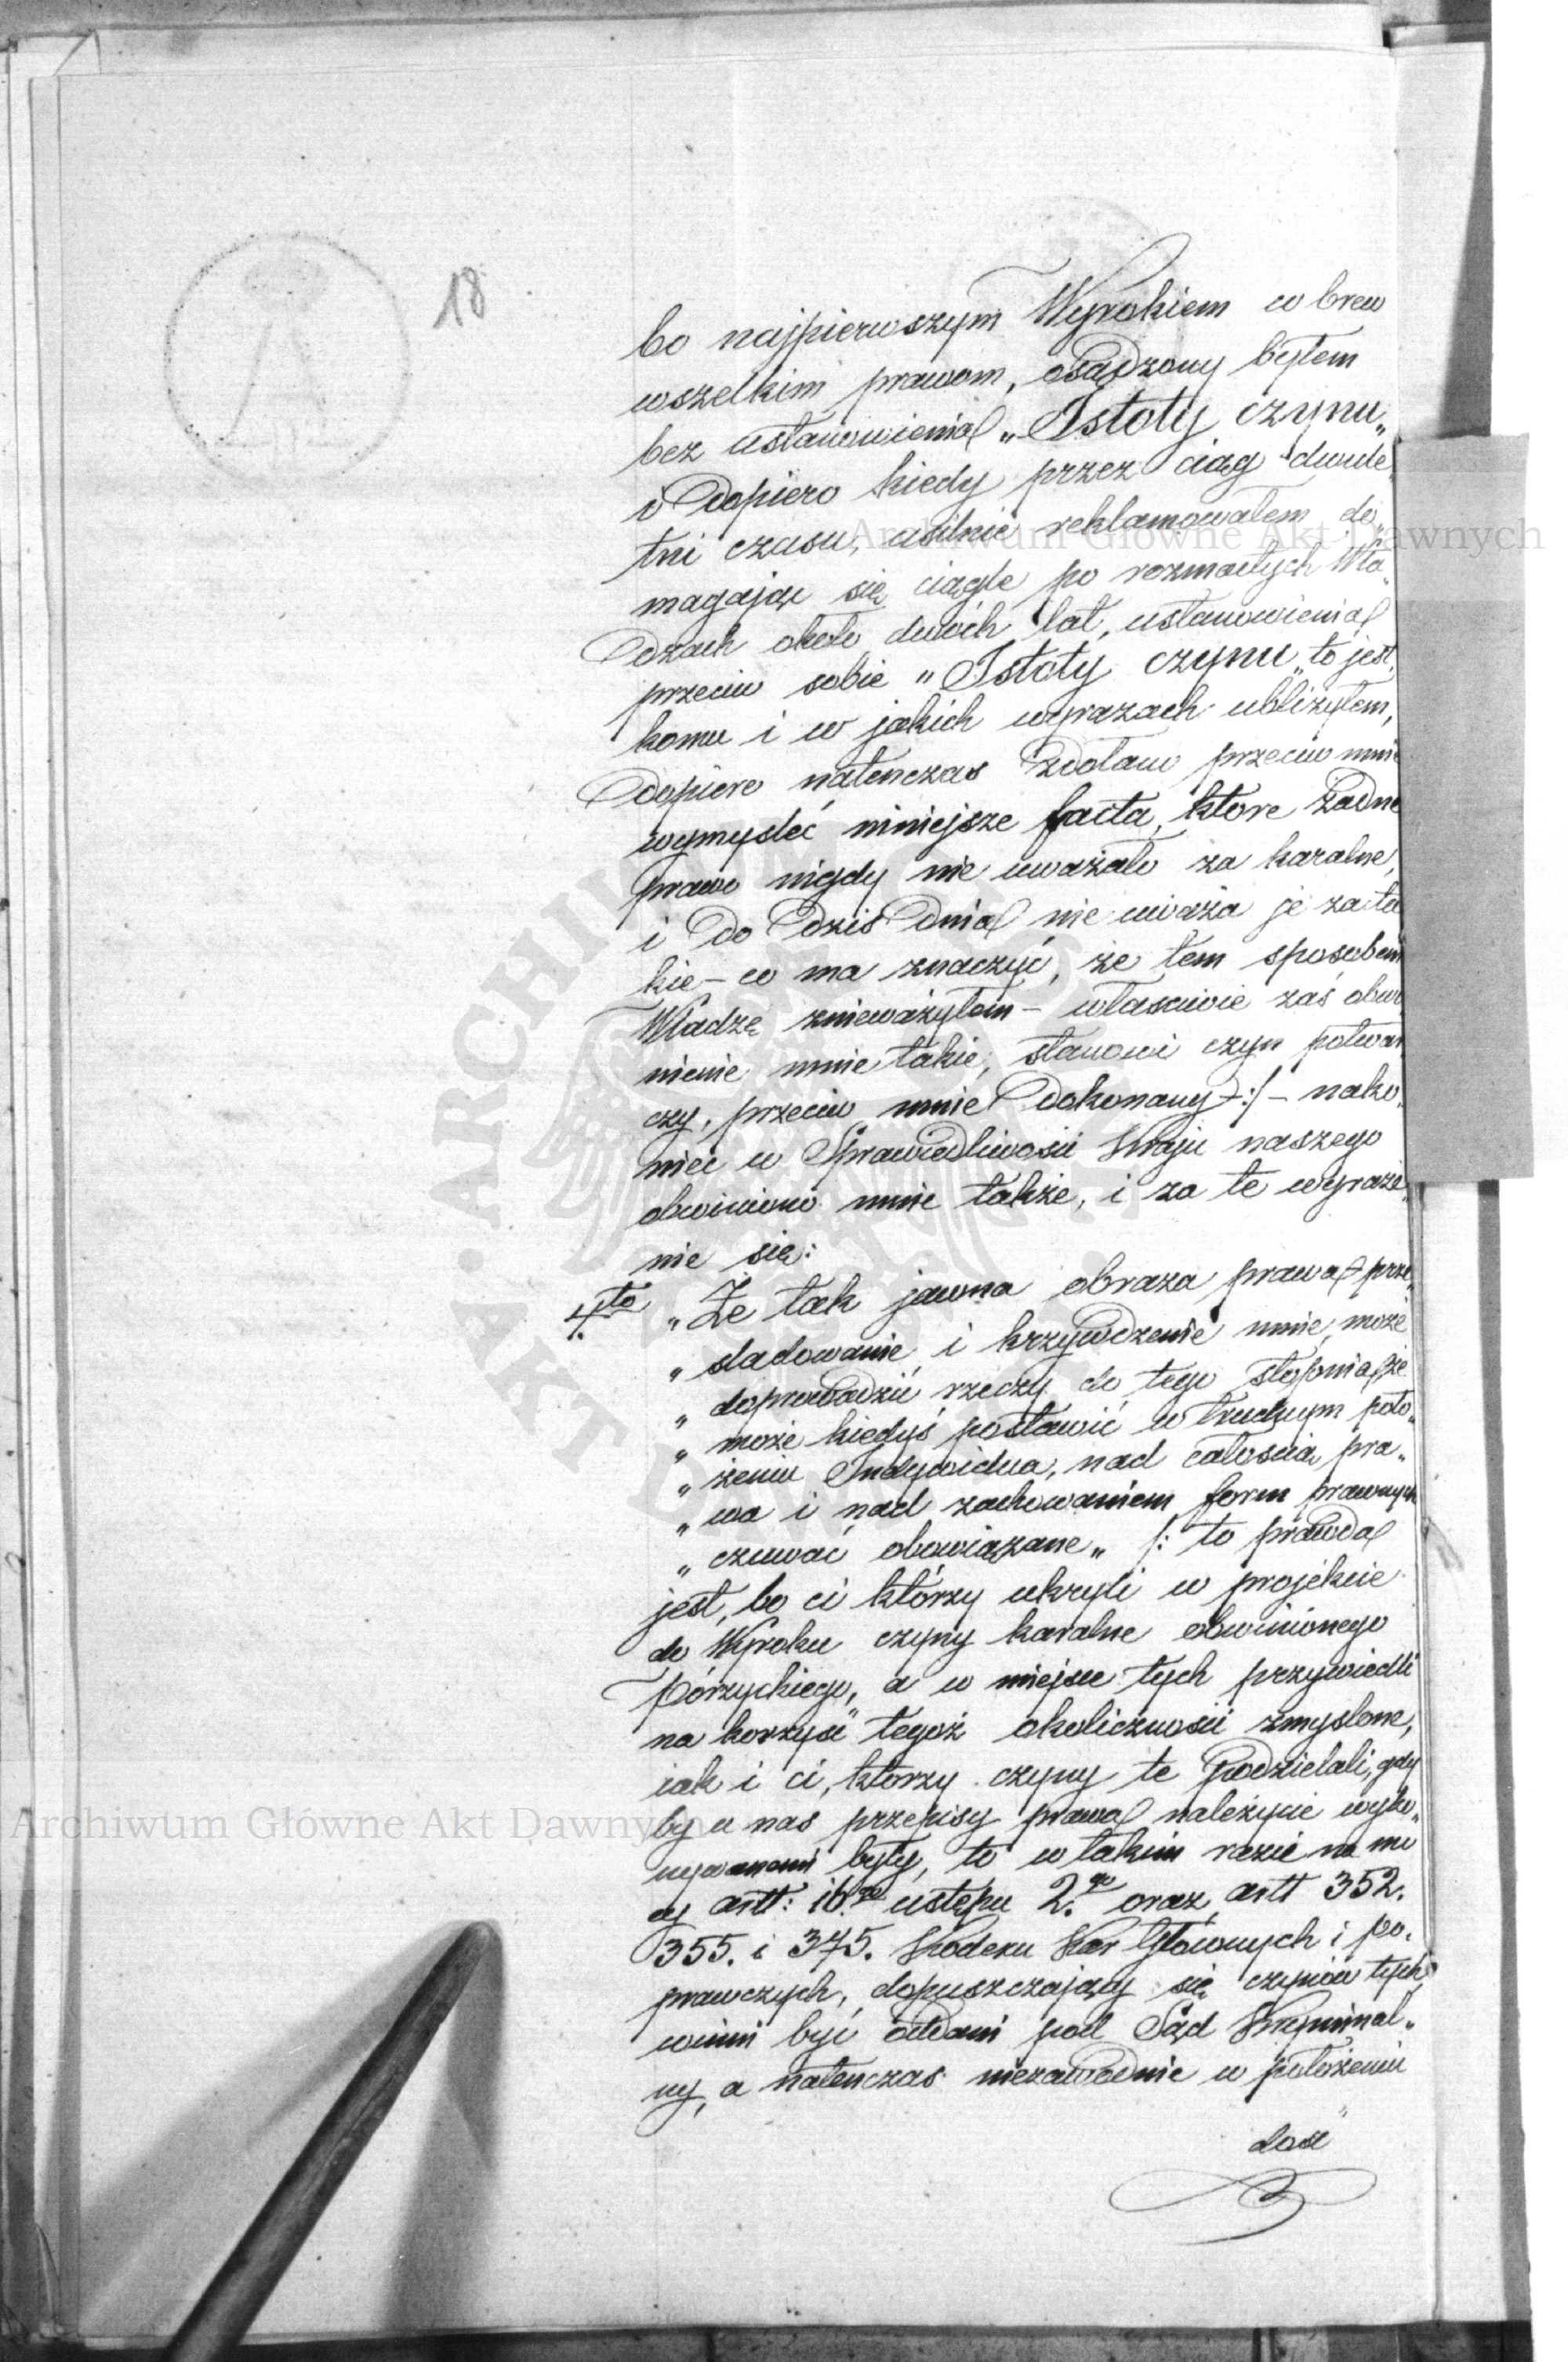 18
bo najpierwszym Wyrokiem wbrew
wszelkim prawom, osądzony byłem
bez ustanowienia „Istoty czynu„
i dopiero kiedy przez ciąg dwule„
tni czasu, usilnie reklamowałem do„
magając się ciągle po rozmaitych Wła„
dzach około dwóch lat, ustanowienia
przeciw sobie „Istoty czynu„ to jest,
komu i w jakich wyrazach ubliżyłem,
dopiero natenczas zdołano przeciw mnie
wymyśleć niniejsze facta, które żadne
prawo nigdy nie uważało za karalne,
i do dziś dnia nie uważa je za ta
kie – co ma znaczyć, że tem sposobem
Władzę znieważyłem – właściwie zaś obwi
nienie mnie takie, stanowi czyn potwar
czy, przeciw mnie dokonany :/ – nako„
niec w Sprawiedliwości Kraju naszego
obwiniono mnie także, i za te wyraże„
nie się:
4.to „Że tak jawna obraza prawa prze„
„sladowanie i krzywdzenie mnie, może
„doprowadzić rzeczy do tego stopnia, że
„może kiedyś postawić w trudnym poło„
„żeniu Indywidua, nad całością pra„
„wa i nad zachowaniem form prawnych
„czuwać obowiązane„ /: to prawda
jest, bo ci którzy ukryli w projekcie
do Wyroku czyny karalne obwinionego
Pórzyckiego, a w miejsce tych przywiedli
na korzyść tegoż okoliczności zmyslone,
jak i ci, ktorzy czyny te podzielali, gdy
by u nas przepisy prawa należycie wyko„
nywanemi były, to w takim razie na mo
cy artt: 16.go ustępu 2.go oraz artt 352.
355. i 375. Kodexu Kar Głównych i po„
prawczych, dopuszczający się czynów tych
winni być oddani pod Sąd Kryminal„
ny, a natenczas niezawodnie w położeniu
dość
Archiwum Główne Akt Dawnych
Archiwum Główne Akt Dawnych